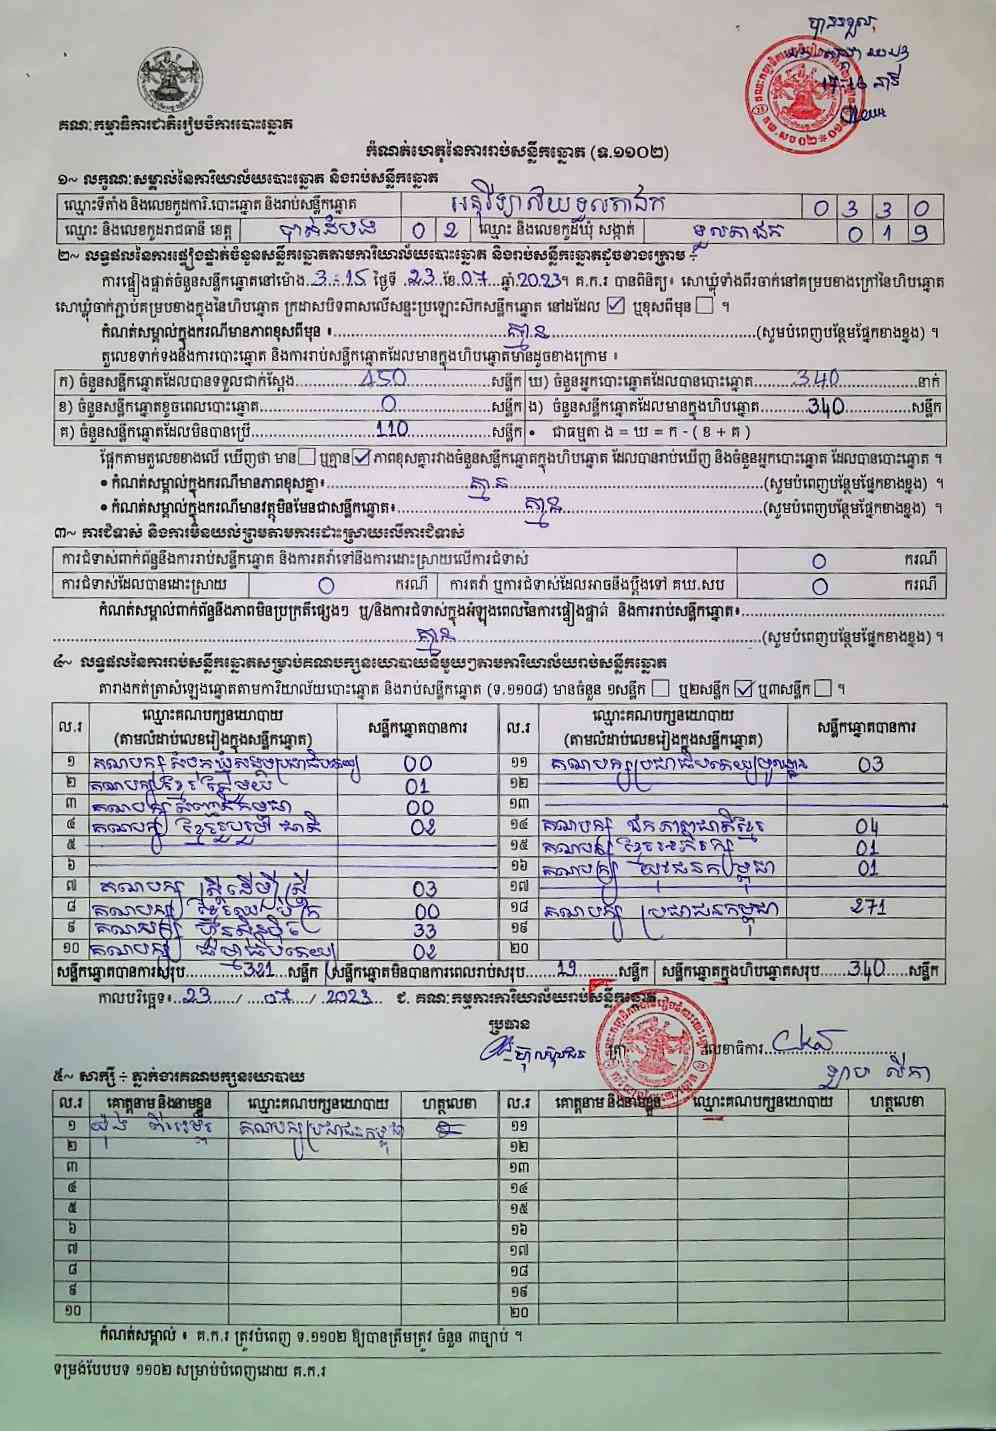 បានទទួល
17:16 នាទី
គណៈកម្មាធិការជាតិរៀបចំការបោះឆ្នោត
កំណត់ហេតុនៃការរាប់សន្លឹកឆ្នោត (ទ.១១០២)
១~ លក្ខណៈសម្គាល់នៃការិយាល័យបោះឆ្នោត និងរាប់សន្លឹកឆ្នោត
ឈ្មោះទីតាំង និងលេខកូដការិ.បោះឆ្នោត និងរាប់សន្លឹកឆ្នោត អនុវិទ្យាល័យទួលតាឯក 0 3 3 0
ឈ្មោះ និងលេខកូដរាជធានី ខេត្ត បាត់ដំបង 0 2 ឈ្មោះ និងលេខកូដឃុំ សង្កាត់ ទួលតាឯក 0 1 9
២~ លទ្ធផលនៃការផ្ទៀងផ្ទាត់ចំនួនសន្លឹកឆ្នោតតាមការិយាល័យបោះឆ្នោត និងរាប់សន្លឹកឆ្នោតដូចខាងក្រោម ÷
ការផ្ទៀងផ្ទាត់ចំនួនសន្លឹកឆ្នោតនៅម៉ោង 3:15 ថ្ងៃទី 23 ខែ 07 ឆ្នាំ 2023។ គ.ក.រ បានពិនិត្យ៖ សោឃ្លុំទាំងពីរចាក់នៅគម្របខាងក្រៅនៃហិបឆ្នោត
សោឃ្លុំចាក់ភ្ជាប់គម្របខាងក្នុងនៃហិបឆ្នោត ក្រដាសបិទពាសលើសន្ទះប្រឡោះស៊កសន្លឹកឆ្នោត នៅដដែល ☑ ឬខុសពីមុន ☐ ។
កំណត់សម្គាល់ក្នុងករណីមានភាពខុសពីមុន ៖ គ្មាន (សូមបំពេញបន្ថែមផ្នែកខាងខ្នង) ។
តួលេខទាក់ទងនឹងការបោះឆ្នោត និងការរាប់សន្លឹកឆ្នោតដែលមានក្នុងហិបឆ្នោតមានដូចខាងក្រោម ៖
ក) ចំនួនសន្លឹកឆ្នោតដែលបានទទួលជាក់ស្តែង 450 សន្លឹក ឃ) ចំនួនអ្នកបោះឆ្នោតដែលបានបោះឆ្នោត 340 នាក់
ខ) ចំនួនសន្លឹកឆ្នោតខូចពេលបោះឆ្នោត 0 សន្លឹក ង) ចំនួនសន្លឹកឆ្នោតដែលមានក្នុងហិបឆ្នោត 340 សន្លឹក
គ) ចំនួនសន្លឹកឆ្នោតដែលមិនបានប្រើ 110 សន្លឹក • ជាធម្មតា ង = ឃ = ក - ( ខ + គ )
ផ្អែកតាមតួលេខខាងលើ ឃើញថា មាន ☐ ឬគ្មាន ☑ ភាពខុសគ្នារវាងចំនួនសន្លឹកឆ្នោតក្នុងហិបឆ្នោត ដែលបានរាប់ឃើញ និងចំនួនអ្នកបោះឆ្នោត ដែលបានបោះឆ្នោត ។
• កំណត់សម្គាល់ក្នុងករណីមានភាពខុសគ្នា៖ គ្មាន (សូមបំពេញបន្ថែមផ្នែកខាងខ្នង) ។
• កំណត់សម្គាល់ក្នុងករណីមានវត្ថុមិនមែនជាសន្លឹកឆ្នោត៖ គ្មាន (សូមបំពេញបន្ថែមផ្នែកខាងខ្នង) ។
៣~ ការជំទាស់ និងការមិនយល់ព្រមតាមការដោះស្រាយលើការជំទាស់
ការជំទាស់ពាក់ព័ន្ធនឹងការរាប់សន្លឹកឆ្នោត និងការតវ៉ាទៅនឹងការដោះស្រាយលើការជំទាស់ 0 ករណី
ការជំទាស់ដែលបានដោះស្រាយ 0 ករណី ការតវ៉ា ឬការជំទាស់ដែលអាចនឹងប្តឹងទៅ គឃ.សប 0 ករណី
កំណត់សម្គាល់ពាក់ព័ន្ធនឹងភាពមិនប្រក្រតីផ្សេងៗ ឬ/និងការជំទាស់ក្នុងអំឡុងពេលនៃការផ្ទៀងផ្ទាត់ និងការរាប់សន្លឹកឆ្នោត៖
គ្មាន (សូមបំពេញបន្ថែមផ្នែកខាងខ្នង) ។
៤~ លទ្ធផលនៃការរាប់សន្លឹកឆ្នោតសម្រាប់គណបក្សនយោបាយនីមួយៗតាមការិយាល័យរាប់សន្លឹកឆ្នោត
តារាងកត់ត្រាសំឡេងឆ្នោតតាមការិយាល័យបោះឆ្នោត និងរាប់សន្លឹកឆ្នោត (ទ.១១០៨) មានចំនួន ១សន្លឹក ☐ ឬ២សន្លឹក ☑ ឬ៣សន្លឹក ☐ ។
ល.រ ឈ្មោះគណបក្សនយោបាយ (តាមលំដាប់លេខរៀងក្នុងសន្លឹកឆ្នោត) សន្លឹកឆ្នោតបានការ ល.រ ឈ្មោះគណបក្សនយោបាយ (តាមលំដាប់លេខរៀងក្នុងសន្លឹកឆ្នោត) សន្លឹកឆ្នោតបានការ
១ គណបក្ស សំបុកឃ្មុំសង្គមប្រជាធិបតេយ្យ 00 ១១ គណបក្សប្រជាធិបតេយ្យមូលដ្ឋាន 03
២ គណបក្សខ្មែរតែមួយ 01 ១២
៣ គណបក្ស សំឡេងកម្ពុជា 00 ១៣
៤ គណបក្ស ខ្មែររួបរួមជាតិ 02 ១៤ គណបក្ស ឯកភាពជាតិខ្មែរ 04
៥ ១៥ គណបក្ស ខ្មែរអភិរក្ស 01
៦ ១៦ គណបក្ស យុវជនកម្ពុជា 01
៧ គណបក្ស ស្ត្រីដើម្បីស្ត្រី 03 ១៧
៨ គណបក្ស ខ្មែរឈប់ក្រ 00 ១៨ គណបក្ស ប្រជាជនកម្ពុជា 271
៩ គណបក្ស ហ៊្វុនស៊ិនប៉ិច 33 ១៩
១០ គណបក្ស ធម្មាធិបតេយ្យ 02 ២០
សន្លឹកឆ្នោតបានការសរុប 321 សន្លឹក សន្លឹកឆ្នោតមិនបានការពេលរាប់សរុប 19 សន្លឹក សន្លឹកឆ្នោតក្នុងហិបឆ្នោតសរុប 340 សន្លឹក
កាលបរិច្ឆេទ៖ 23 / 07 / 2023 ជ. គណៈកម្មការការិយាល័យរាប់សន្លឹកឆ្នោត
ប្រធាន
ត្រា លេខាធិការ
៥~ សាក្សី ÷ ភ្នាក់ងារគណបក្សនយោបាយ
ល.រ គោត្តនាម និងនាមខ្លួន ឈ្មោះគណបក្សនយោបាយ ហត្ថលេខា ល.រ គោត្តនាម និងនាមខ្លួន ឈ្មោះគណបក្សនយោបាយ ហត្ថលេខា
១ គណបក្សប្រជាជនកម្ពុជា ១១
២ ១២
៣ ១៣
៤ ១៤
៥ ១៥
៦ ១៦
៧ ១៧
៨ ១៨
៩ ១៩
១០ ២០
កំណត់សម្គាល់ ៖ គ.ក.រ ត្រូវបំពេញ ទ.១១០២ ឱ្យបានត្រឹមត្រូវ ចំនួន ៣ច្បាប់ ។
ទម្រង់បែបបទ ១១០២ សម្រាប់បំពេញដោយ គ.ក.រ